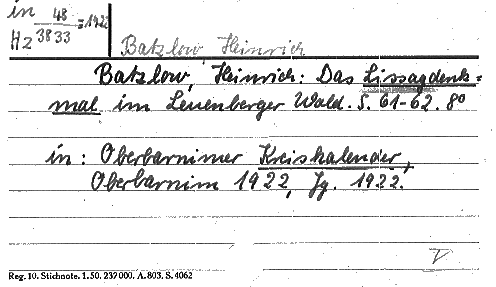 in 48 = 1922
Hz 3833
Batzlow Heinrich
Batzlow, Heinrich: Das Lissagdenk=
mal im Leuenberger Wald. S. 61-62. 8º
in: Oberbarnimer Kreiskalender,
Oberbarnim 1922, Jg. 1922.
Reg. 10. Stichnote. 1. 50. 237000. A. 803. S. 4062